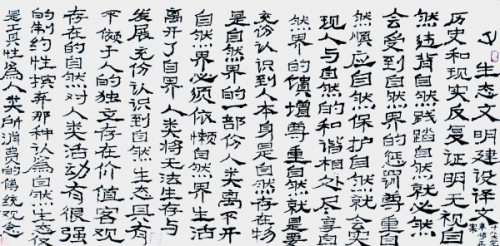 生态文明建设译文
历史和现实反复证明无视自
然违背自然践踏自然就必然
会受到自然界的惩罚尊重自
然顺应自然保护自然就会实
现人与自然的和谐相处尽享自
然界的馈增尊重自然就必须
充份认识到人本身是自然存在物
是自然界的一部份人类离不开
自然界必须依懒自然界生活
离开了自界人类将无法生存与
发展充份认识到自然生态具有
不于人的独立存在价值客观
存在的自然对人类活动有很强
的制约性摈弃那种认为自然生态仅
是工具性为人类所消费的传统观念